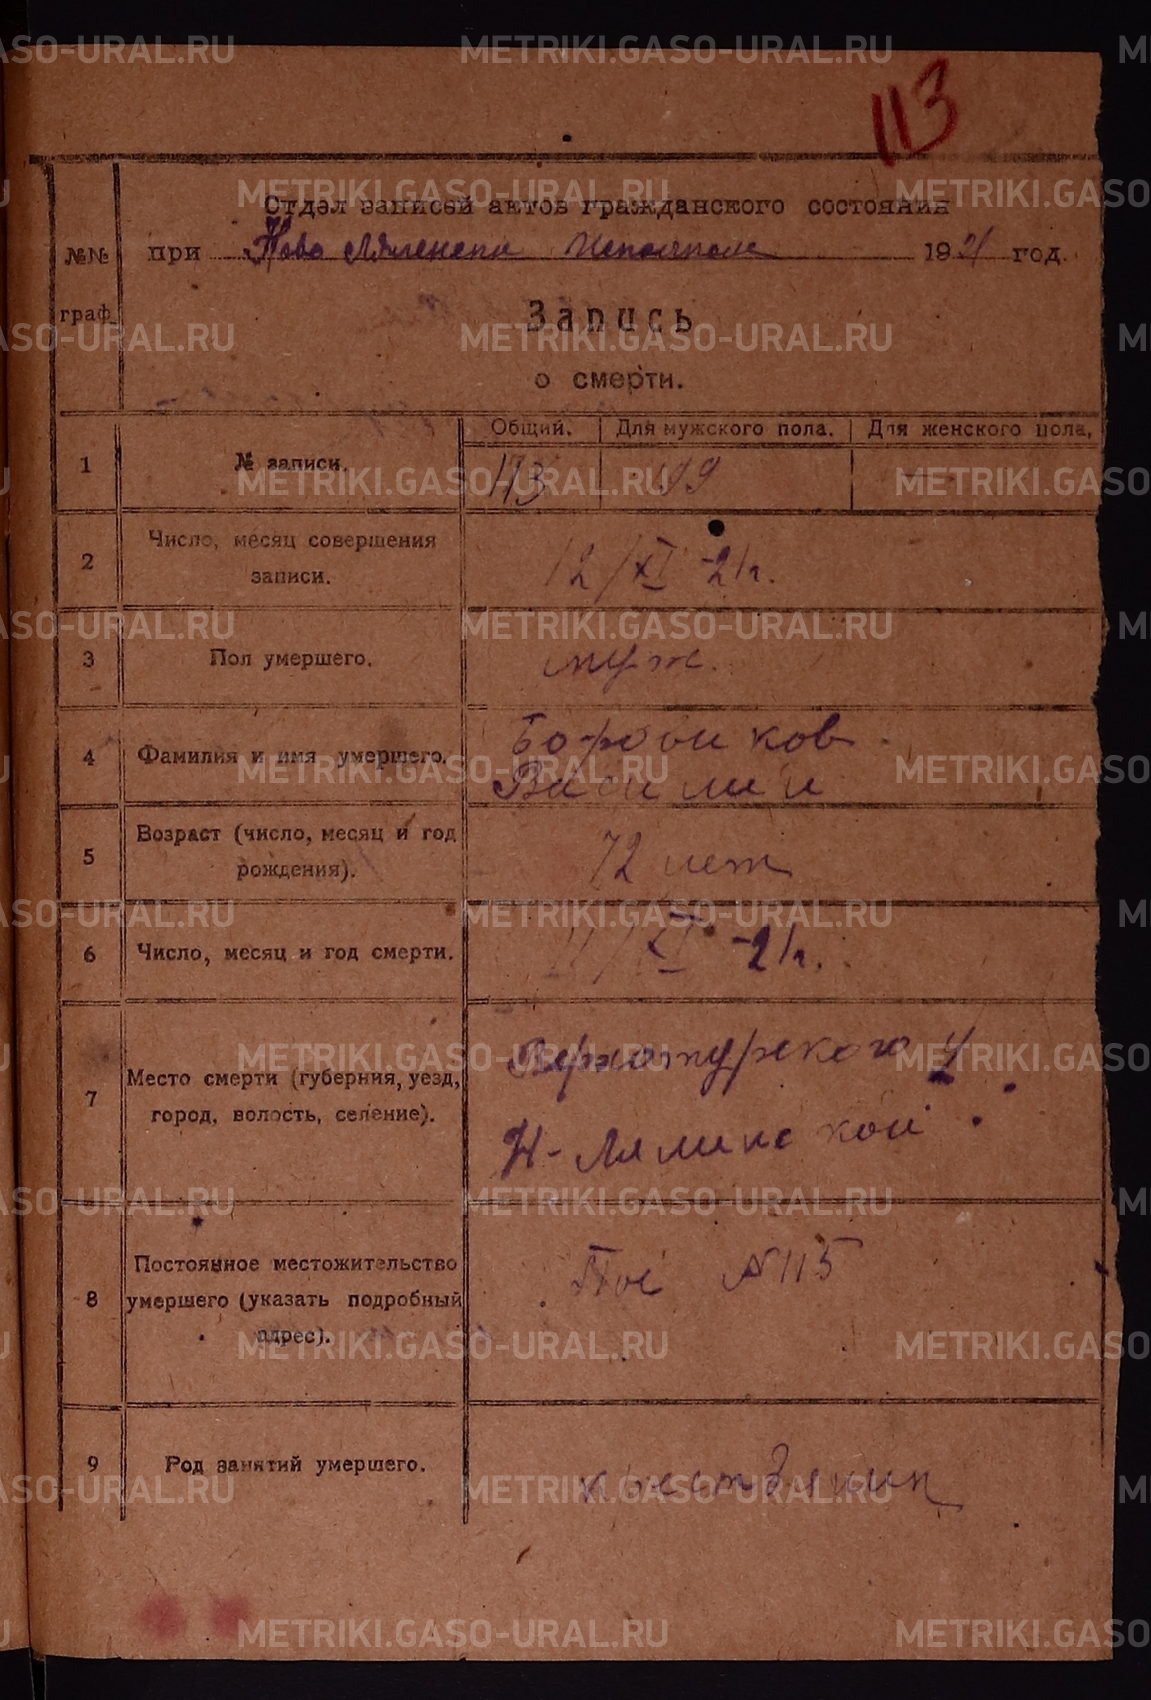 113
Отдел записей актов гражданского состояния
№№ граф.
при Ново Ляленски Исполком 1921 год.
Запись
о смерти.
Общий. Для мужского пола. Для женского пола.
1 № записи. 113 99 —
2 Число, месяц совершения
записи.
12/XI -21г.
3 Пол умершего. муж.
4 Фамилия и имя умершего.
Василий
5 Возраст (число, месяц и год
рождения).
72 лет
6 Число, месяц и год смерти. 11/XI -21г.
7 Место смерти (губерния, уезд,
город, волость, селение).
Верхотурского у
Н-Лялинской
8 Постоянное местожительство
умершего (указать подробный
адрес).
№ 115
9 Род занятий умершего.
METRIKI.GASO-URAL.RU